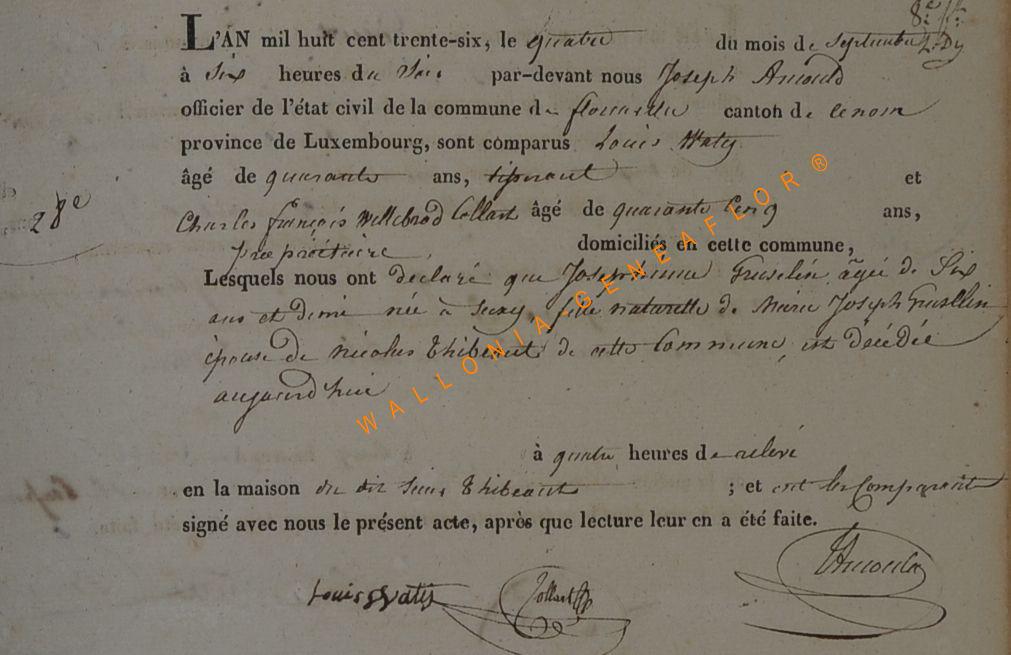 L'AN mil huit cent trente-six, le quatre du mois de Septembre
à Six heures du Soir par-devant nous Joseph Arnould
officier de l'état civil de la commune de canton de ce nom
province de Luxembourg, sont comparus Louis Watiy
28e
âgé de quarante ans, tisserant et
Charles François Willebrod Collart âgé de quarante Cinq ans,
propriétaire domiciliés en cette commune,
Lesquels nous ont declaré que Josephinne Gruselin âgée de Six
ans et dimi née à Suxy, fille naturelle de Marie Joseph Grusellin
épouse de Nicolas Thibeaut de cette Commune, est décédée
aujourd'huie
à quatre heures de relevé
en la maison du dit Sieur Thibeaut ; et ont les Comparant
signé avec nous le présent acte, après que lecture leur en a été faite.
Louis Watiy Collart JArnould
WALLONIA GENEAFLOR ®